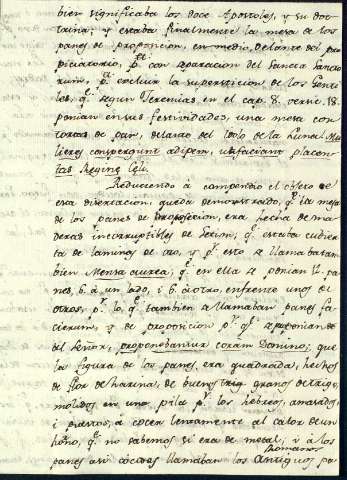 bien significaba los doce Apostoles, y su doc-
trina; y estaba finalmente la mesa de los
panes de proposicion, en medio, delante del pro
piciatorio, pª. con aparacion del Sancta Sancto
rum, pª. excluir la supersticion de los Genti
les, qᵉ. segun Jeremias en el cap. 8. verso. 18.
ponian en sus festividades, una mesa con
tortas de pan, delante del Idolo de la Luna Mu
lieres conspergunt adipem, ut faciant placen
tas Regine Celi.
Reduciendo a compendio el objeto de
esta disertacion, queda demostrado, qᵉ. la mesa
de los panes de proposicion, era hecha de ma
deras incorruptibles de Setim; qᵉ. estaba cubier
ta de laminas de oro, y pʳ. esto se llamaba tam
bien Mensa aurea; qᵉ. en ella se ponian 12. pa
nes, 6. á un lado, i 6. á otro, enfrente unos de
otros; pʳ. lo qᵉ. tambien se llamaban panes fa
cierum, y de proposicion pʳ. qᵉ. se ponian de
del Señor, proponebantur coram Domino; que
la figura de los panes, era quadrada, hechos
de flor de harina, de buenos granos de trigo,
molidos en una pila pʳ. los hebreos, amasados,
i puestos, a cocer lentamente al calor de un
horno, qᵉ. no sabemos si era de metal; i á los
panes asi cocidos llamaban los antiguos Romanos pa